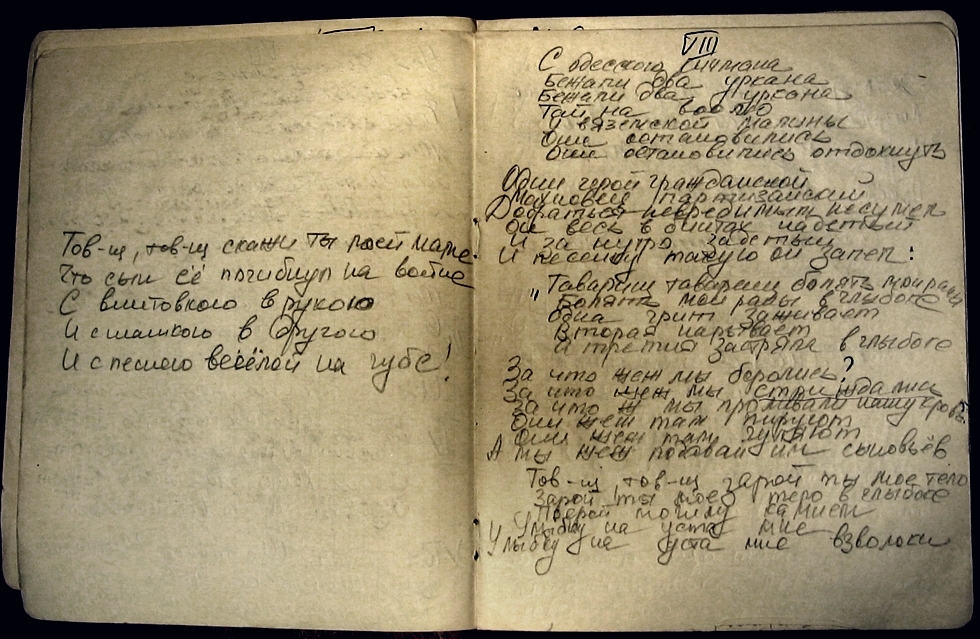 Тов-щ, тов-щ скажи ты моей маме
Что сын её погибнул на войне
С винтовкою в рукою
И с шашкою в другою
И с песнею весёлой на губе!
VII
С одесского кичмана
Бежали два уркана
Бежали два уркана
Тай на волю
У вяземской малины
Они остановились
Они остановились отдохнуть
Один герой гражданской
Махновец партизанский
Добраться невредимым не сумел
Он весь в бинтах
И за нутро
И песенку такую он запел:
"Таварищ таварищ болять мои раны
Болять мои раны в глыбоке
Одна заживает
Вторая нарывает
И третия застряла в глыбоке
За что жеж мы боролись?
За что жеж мы стрыждались
За что ж мы проливали нашу кровь
Они жеж там пируют
Они жеж там гуляют
А мы жеж подавай им сыновьёв
Тов-щ, тов-щ зарой ты мое тело
Зарой ты моео тело в глыбоке
Покрой могилу камнем
Улыбку на уста мне
Улыбку на уста мне взволоки